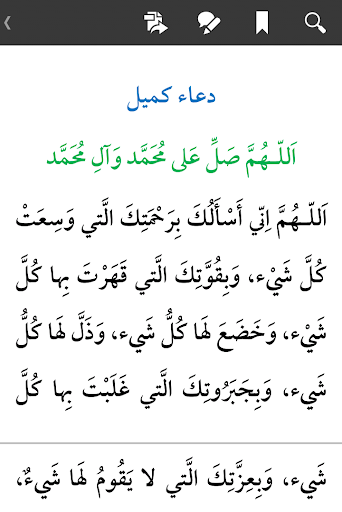 دعاء كميل
اَللّـهُمَّ صَلِّ عَلى مُحَمَّد وَآلِ مُحَمَّد
اَللّـهُمَّ اِنّي أَسْأَلُكَ بِرَحْمَتِكَ الَّتي وَسِعَتْ
كُلَّ شَيْء، وَبِقُوَّتِكَ الَّتي قَهَرْتَ بِها كُلَّ
شَيْء، وَخَضَعَ لَها كُلُّ شَيء، وَذَلَّ لَها كُلُّ
شَيء، وَبِجَبَرُوتِكَ الَّتي غَلَبْتَ بِها كُلَّ
شَيء، وَبِعِزَّتِكَ الَّتي لا يَقُومُ لَها شَيءٌ،